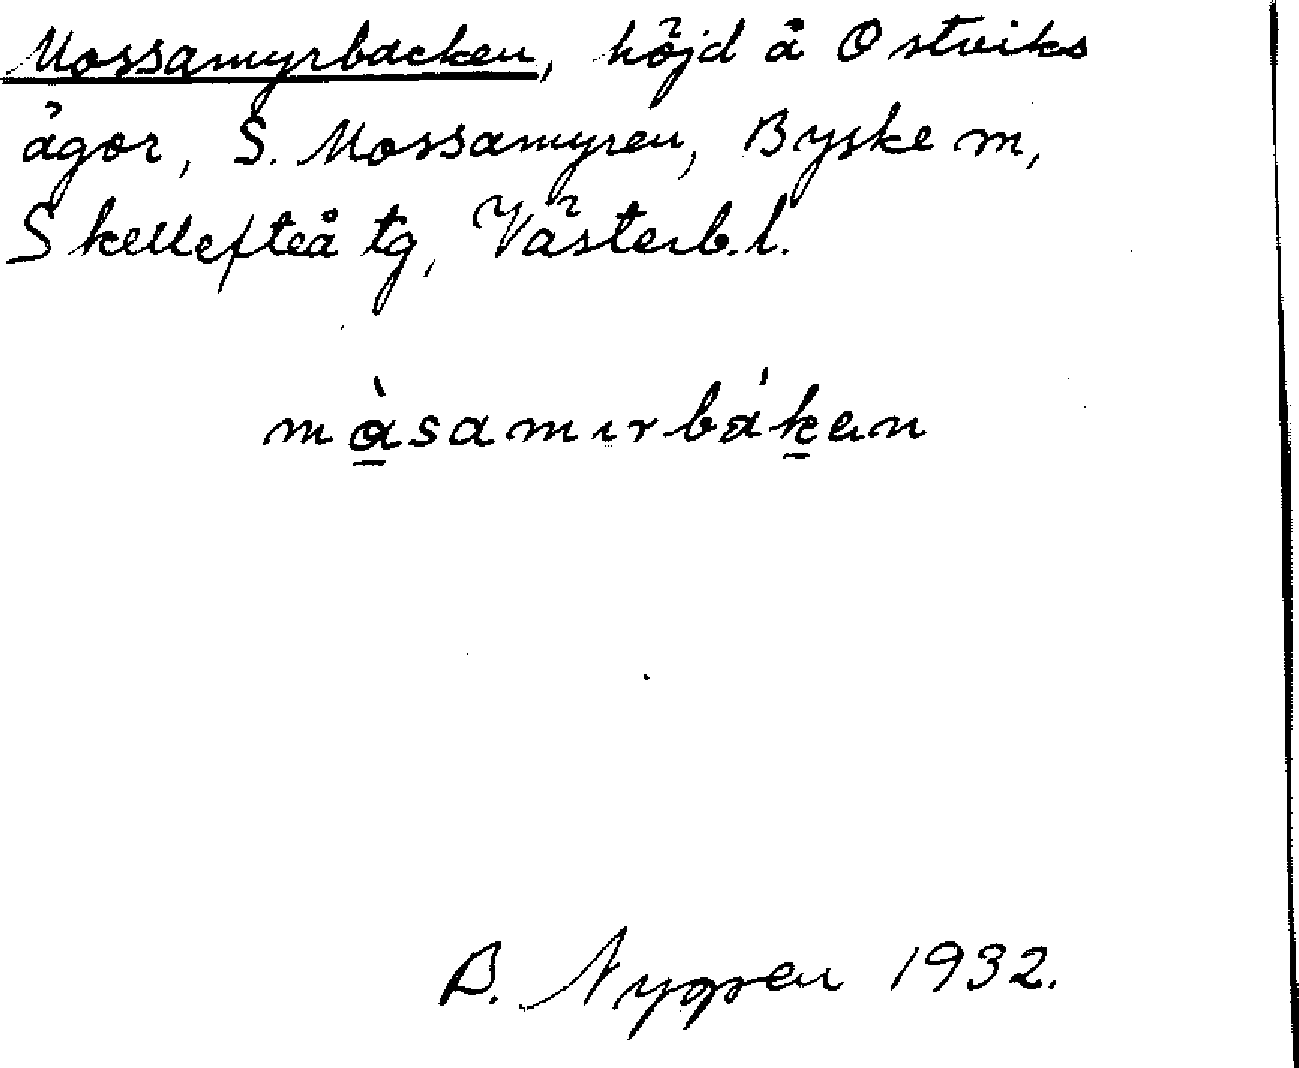 Mossamyrbacken, höjd å Ostviks
ägor, S. Mossamyren, Byske m,
Skellefteå tg, Västerb. l.
màsamırbákan
B. Nygren 1932.